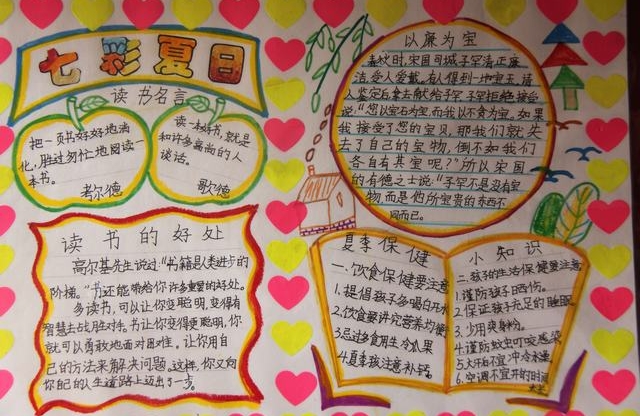 七彩夏日
读书名言
把一页书好好地消
化,胜过匆忙地阅读一
本书。
读一本好书,就是
和许多高尚的人
谈话。
歌德
读书的好处
高尔基先生说过:“书籍是人类进步的
阶梯。”书还能带给你许多重要的好处。
多读书,可以让你变聪明,变得有
智慧去战胜对手。书让你变得更聪明,你
就可以勇敢地面对困难。让你用自
己的方法来解决问题。这样,你又向
你自己的人生道路上迈出了一步。
以廉为宝
春秋时,宋国司城子罕清正廉
洁,受人爱戴。有人得到一块宝玉,请
人鉴定后拿去献给子罕,子罕拒绝接受,
说:“您以宝石为宝,而我以不贪为宝。如果
我接受了您的宝贝,那我们就失
去了自己的宝物,倒不如我们
各自有其宝呢?”所以宋国
的有德之士说:“子罕不是没有宝
物,而是他所宝贵的东西不
同而已。
夏季保健
一.饮食保健要注意
1.提倡孩子多喝白开水
2.饮食要讲究营养均衡
3.忌过多食用生冷瓜果
4.夏季孩注意补钙
小知识
二.孩子的生活保健要注意
1.谨防孩子晒伤。
2.保证孩子充足的睡眠
3.少用爽身粉。
4.谨防蚊虫叮咬感染
5.大汗后不宜冲冷水澡
6.空调不宜开的时间
太长